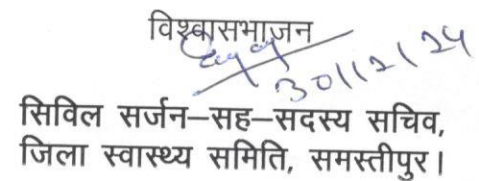 विश्वासभाजन
30/12/24
सिविल सर्जन–सह–सदस्य सचिव,
जिला स्वास्थ्य समिति, समस्तीपुर।